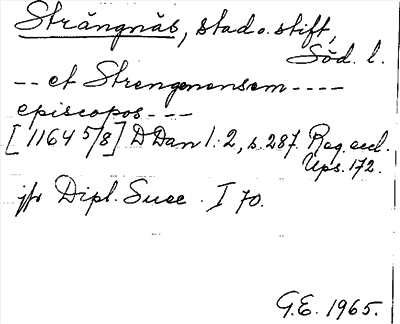 Strängnäs, stad o. stift,
Söd. l.
-- et Strengenensem ----
episcopos ---
[1164 5/8] DDan 1:2, s. 287. Reg. eccl.
Ups. 172.
jfr Dipl. Suec. I 70.
G.E. 1965.